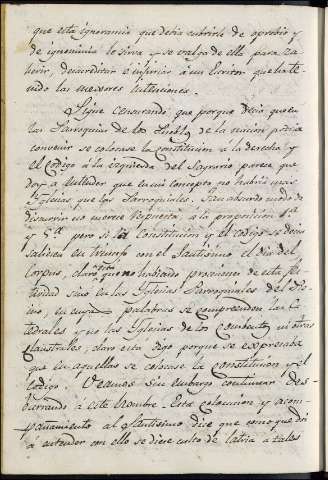 que esta ignorancia que debia cubrirle de oprobio y
de ignominia le sirva y se valga de ella para za
herir, desacreditar é injuriar á un Escritor que ha te
nido las mejores intenciones.
Sigue censurando que porque decia que en
las Parroquias de los Pueblos de la nacion podria
convenir se colocase la constitucion á la derecha y
el codigo á la izquierda del Sagrario parece que
doy á entender que en mi concepto no habrá mas
Yglesias que las Parroquiales. Tan absurdo modo de
discurrir no merece respuesta, á la proposicion 4ª
y 5ª pero si la Constitucion y el codigo se decia
saldria en triunfo con el Santisimo el dia del
Corpus, claro está que no habiendo procesiones de esta fes
tividad sino en las Yglesias Parroquiales del
mo, en cuyas palabras se comprenden las Ca
tedrales y no las Yglesias de los Conventos ni otras
claustrales, claro está digo porque se expresaba
que en aquellas se colocase la constitucion y el
Codigo. Veamos sin embargo continuar des
barrando á este hombre. Esta colocacion y acom
pañamiento al Santisimo dice que como que doi
á entender con ello se diese culto de latria á tales